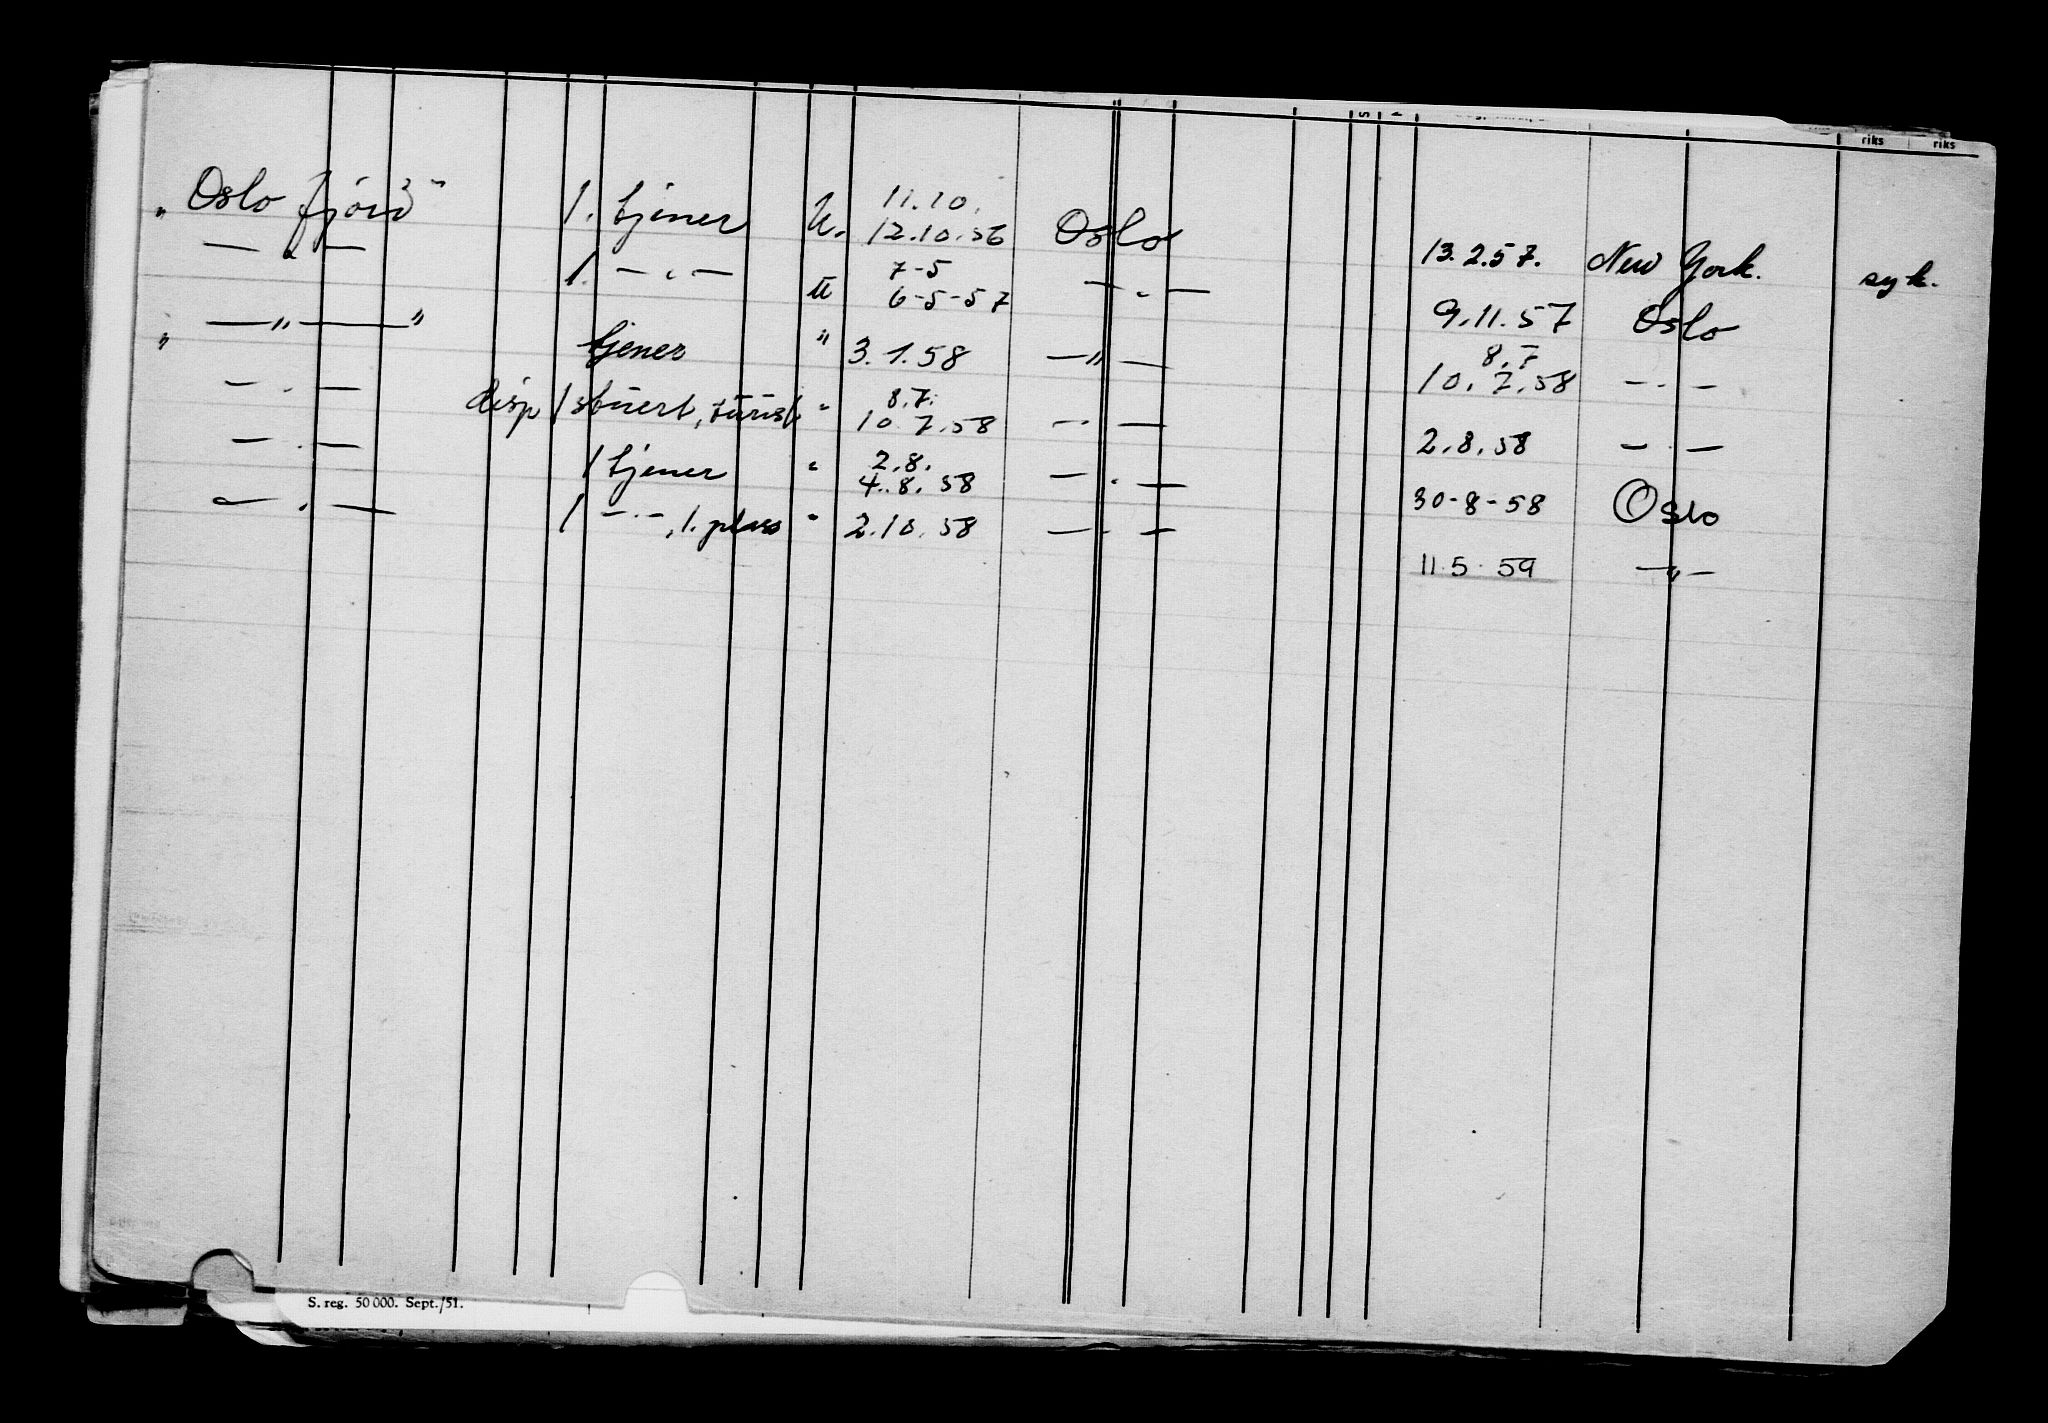 riks riks
„ Oslofjord " 1. tjener U. 11.10. 12.10.56 Oslo 13.2.57. New York. syk.
— „ — 1. — „ — U 7-5 6-5-57 — „ — 9.11.57 Oslo
„ — „ — " tjener " 3.1.58 — „ — 8.7 10.7.58 — „ —
— „ — disp 1 stuert, turist " 8.7. 10.7.58 — „ — 2.8.58 — „ —
— „ — 1 tjener " 2.8. 4.8.58 — „ — 30-8-58 Oslo
— „ — 1 — „ —, 1. plass " 2.10.58 — „ — 11.5.59 — „ —
S. reg. 50 000. Sept./51.